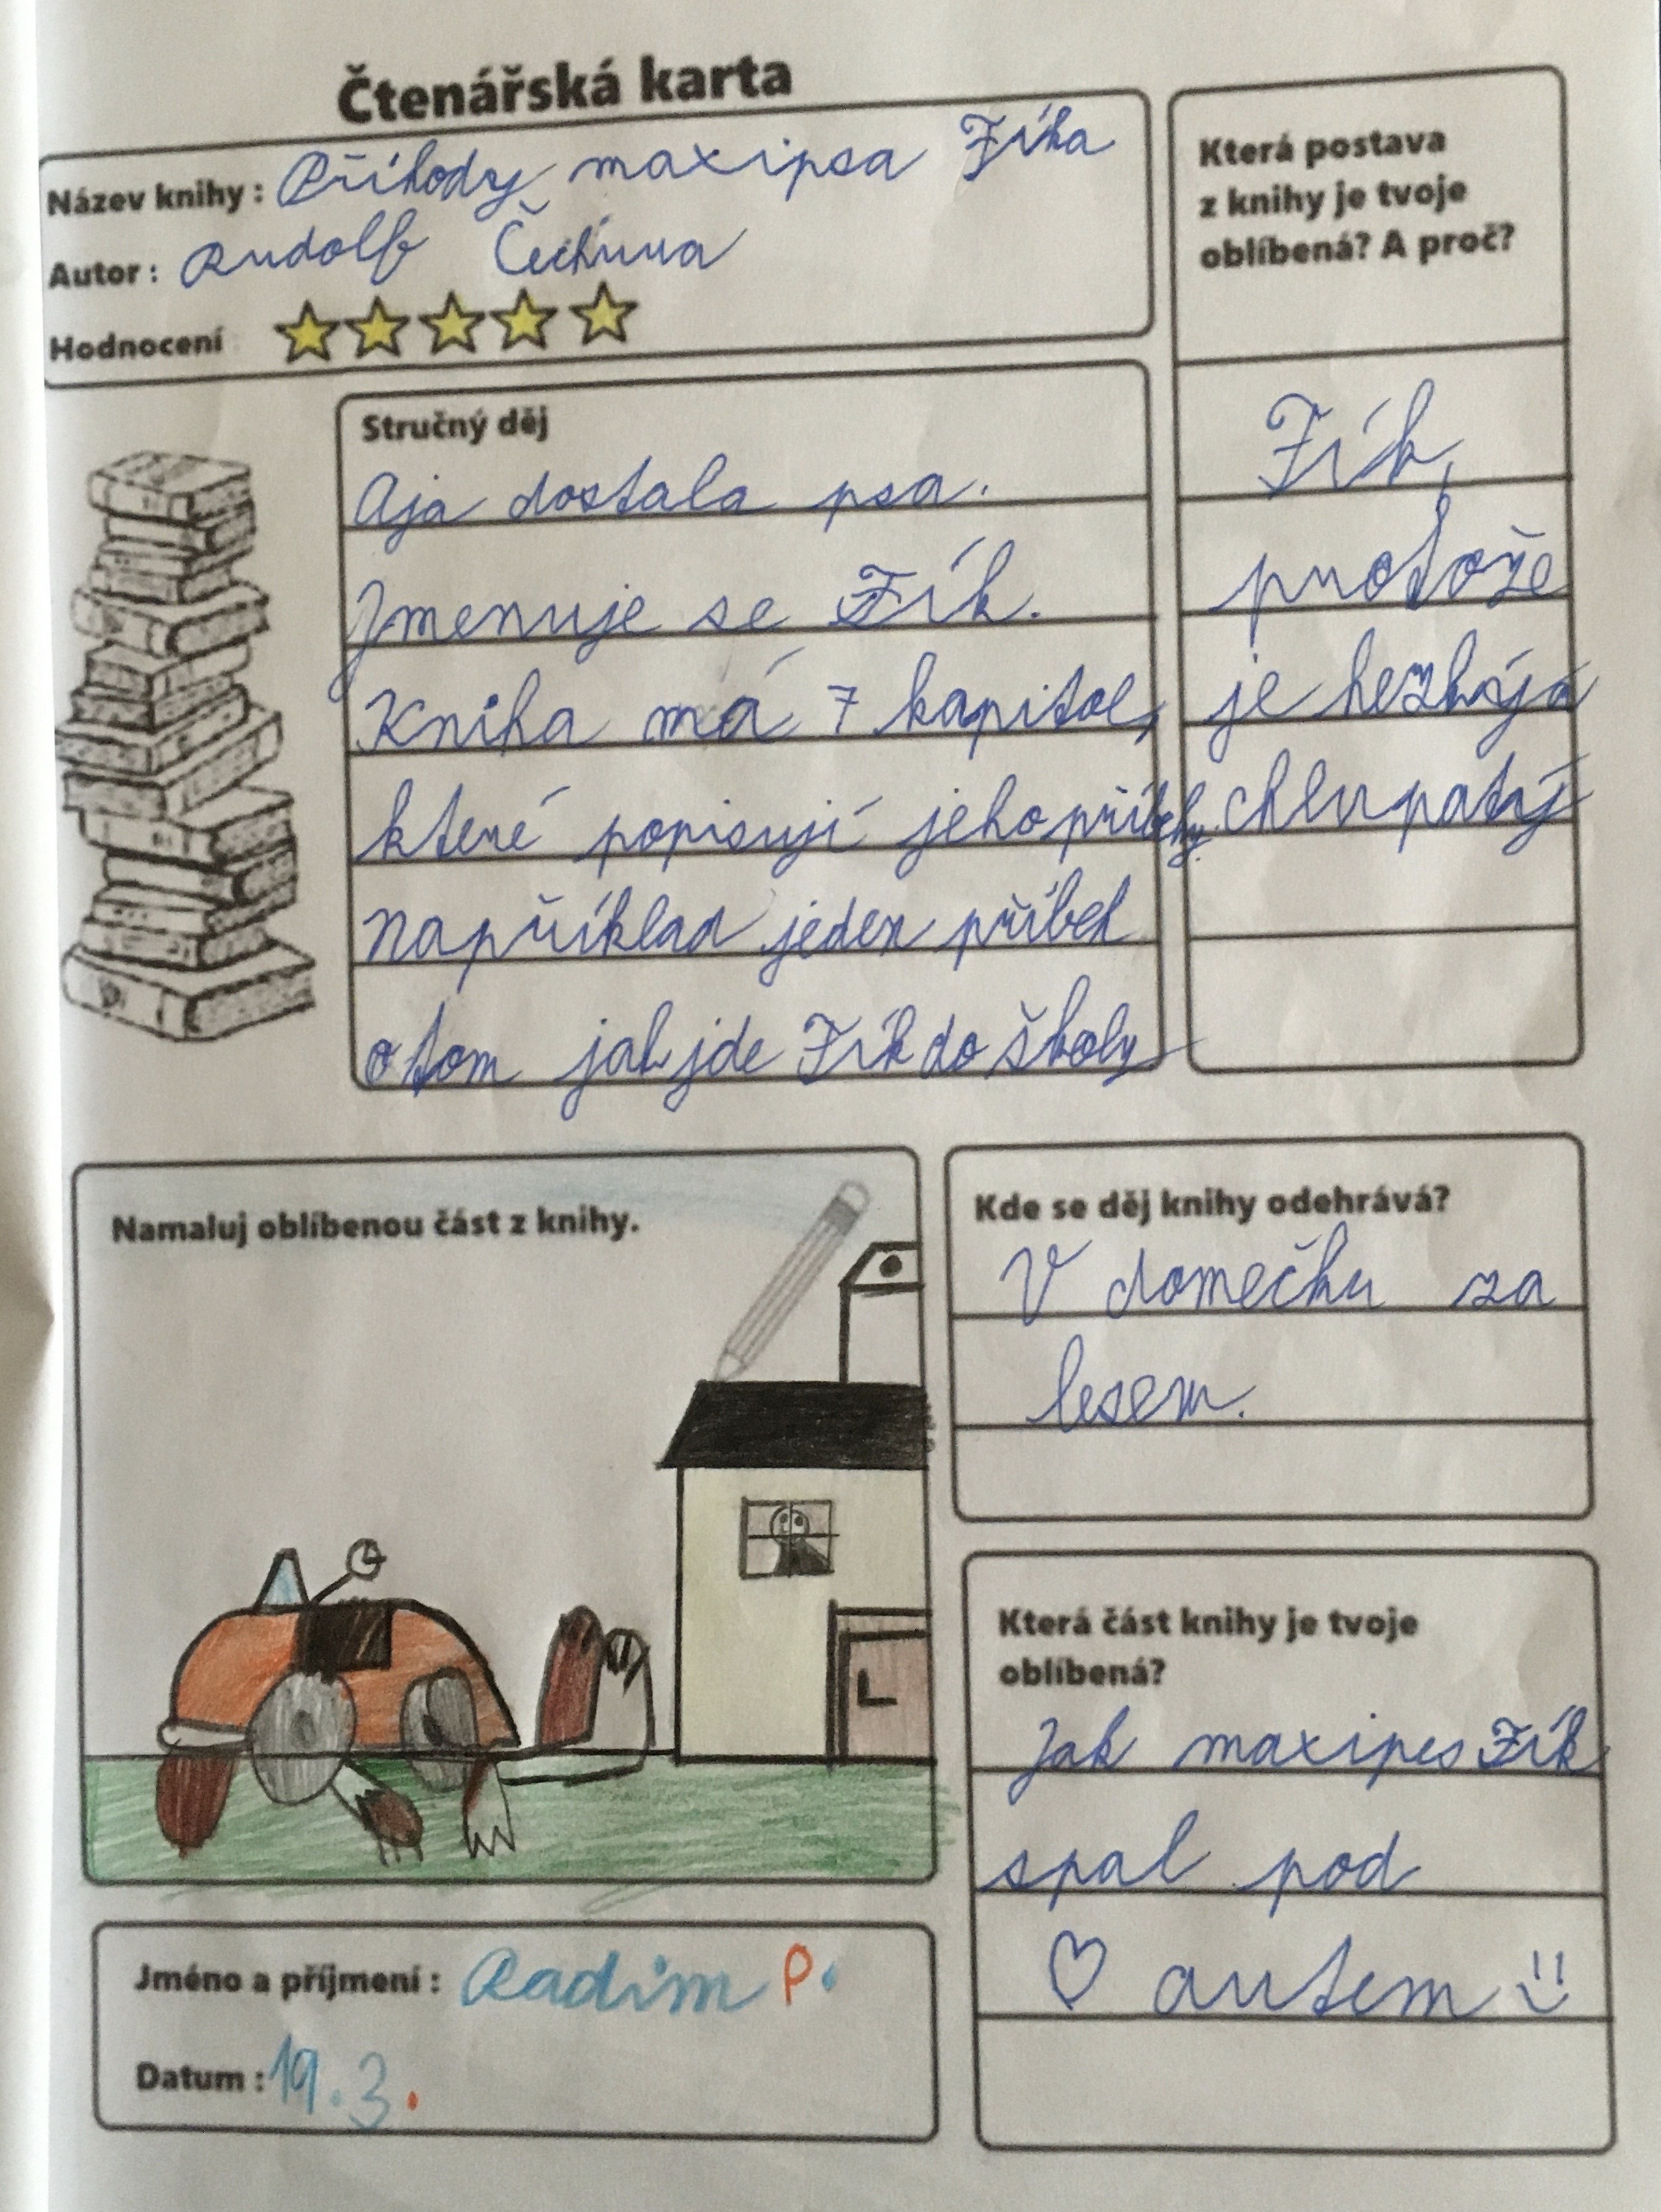 Čtenářská karta
Název knihy : Příhody maxipsa Fíka
Autor : Rudolf Čechura
Hodnocení
Která postava
z knihy je tvoje
oblíbená? A proč?
Fík,
protože
je hezký a
chlupatý
Stručný děj
Aja dostala psa.
Jmenuje se Fík.
Kniha má 7 kapitol,
které popisují jeho příběhy.
Například jeden příbeh
o tom jak jde Fík do školy
Namaluj oblíbenou část z knihy.
Kde se děj knihy odehrává?
V domečku za
lesem.
Která část knihy je tvoje
oblíbená?
Jak maxipes Fík
spal pod
♡ autem
Jméno a příjmení : Radim P.
Datum : 19.3.